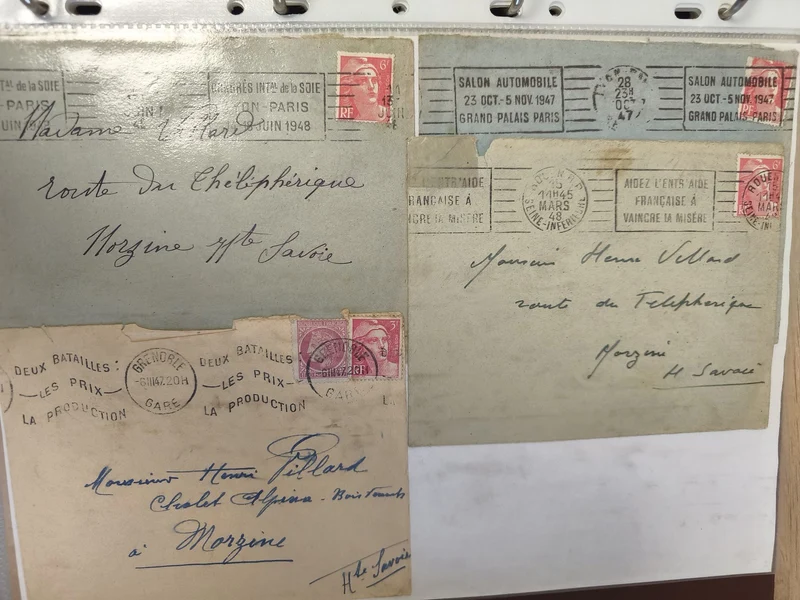 TAL de la SOIE
PARIS
CONGRÈS INTAL de la SOIE
LYON-PARIS
JUIN 1948
6F
RF
Madame Villard
route du Théléphérique
Morzine Hte Savoie
SALON AUTOMOBILE
23 OCT.-5 NOV. 1947
GRAND PALAIS PARIS
28
23H
OCT
47
SALON AUTOMOBILE
23 OCT.-5 NOV. 1947
GRAND PALAIS PARIS
L'ENTR'AIDE
FRANÇAISE À
VAINCRE la MISÈRE
ROUEN R.P.
15
11H45
MARS
48
SEINE-INFERIEURE
AIDEZ L'ENTR'AIDE
FRANÇAISE À
VAINCRE la MISÈRE
ROUEN
MAR
Monsieur Henri Villard
route du Telepherique
Morzine
H Savoie
DEUX BATAILLES:
LES PRIX
LA PRODUCTION
GRENOBLE
-6III47.20H
GARE
DEUX BATAILLES
LES PRIX
LA PRODUCTION
GRENOBLE
-6III47.20H
GARE
3F
Monsieur Henri Villard
Chalet Alpina -
à Morzine
Hte Savoie